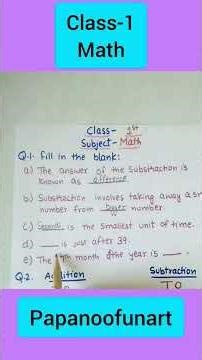 Class-1
Math
Class- 1st
Subject- Math
Q.1. Fill in the blank:
a) The answer of the Substraction is
known as difference
b) Substraction involves taking away a sm
number from bigger number.
c) Seconds is the Smallest unit of time.
d) ___ is just after 39.
e) The month of the year is ___.
Q.2. Addition Subtraction
T O
Papanoofunart